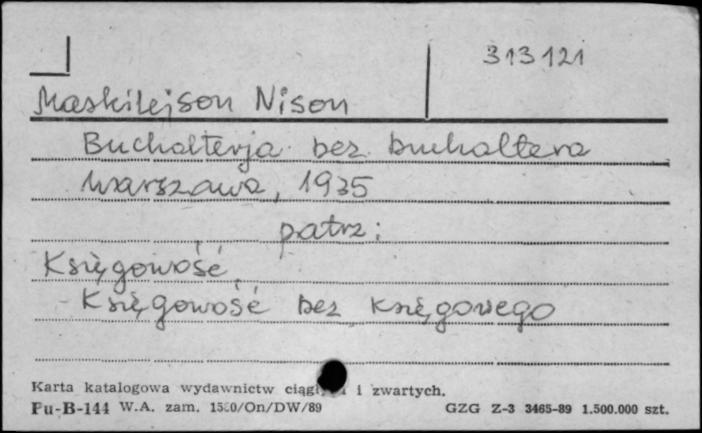 313121
Maskilejson Nison
Buchalterja bez buchaltera
Warszawa, 1935
patrz:
Księgowość
Księgowość bez księgowego
Karta katalogowa wydawnictw i zwartych.
Pu-B-144 W.A. zam. GZG Z-3 3465-89 1.500.000 szt.